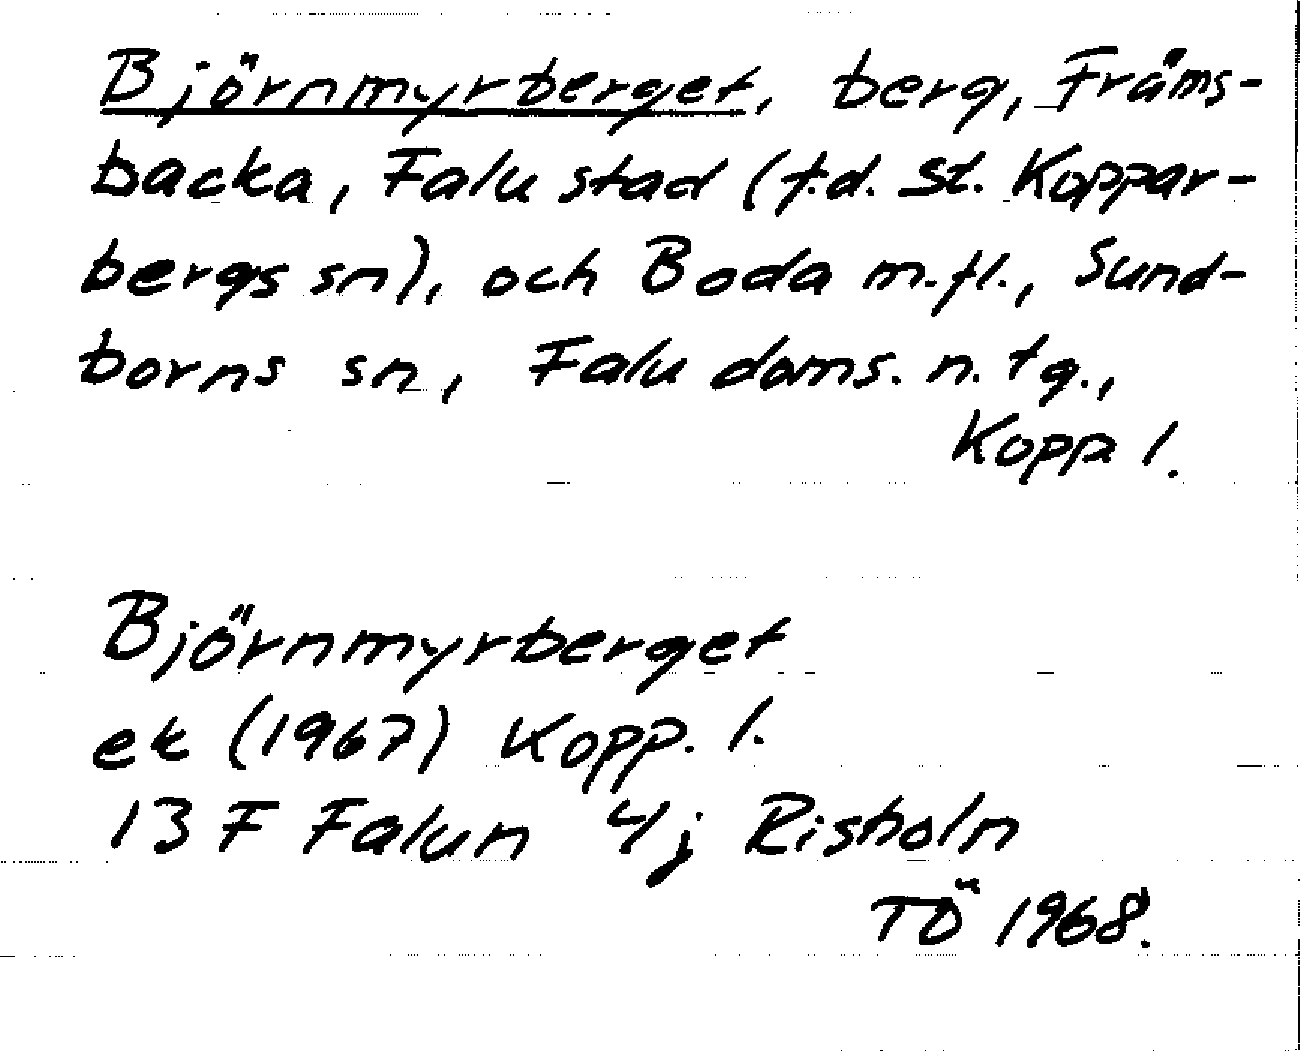 Björnmyrberget, berg, Främs-
backa, Falu stad (f.d. St. Koppar-
bergs sn), och Boda m.fl., Sund-
borns sn, Falu doms. n. tg.,
Kopp l.
Björnmyrberget
ek (1967) Kopp. l.
13 F Falun 4j Risholn
TÖ 1968.